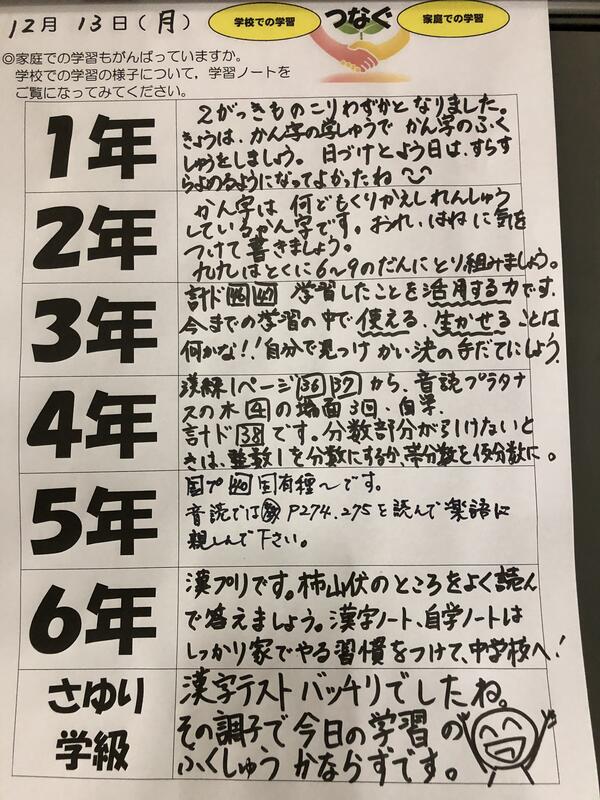 12月 13日(月)
学校での学習 つなぐ 家庭での学習
◎家庭での学習もがんばっていますか。
学校での学習の様子について，学習ノートを
ご覧になってみてください。
1年
2がっきものこりわずかとなりました。
きょうは、かん字の学しゅうで かん字のふく
しゅうをしましょう。 日づけとよう日は、すらす
らよめるようになってよかったね
2年
かん字は 何どもくりかえしれんしゅう
しているかん字です。おれ、はねに気を
つけて書きましょう。
九九はとくに6〜9のだんにとり組みましょう。
3年
計ド 学習したことを活用する力です。
今までの学習の中で使える、生かせることは
何かな!!自分で見つけかい決の手だてにしよう。
4年
漢練1ページ 36 37 から、音読プラタナ
スの木 4 の場面3回、自学、
計ド 38 です。分数部分が引けないと
きは、整数1を分数にするか、帯分数を仮分数に。
5年
国プ 40 固有種〜です。
音読では P274.275を読んで楽語に
親しんで下さい。
6年
漢プリです。柿山伏のところをよく読ん
で答えましょう。漢字ノート、自学ノートは
しっかり家でやる習慣をつけて、中学校へ!
さゆり
学級
漢字テスト バッチリでしたね。
その調子で今日の学習の
ふくしゅう かならずです。